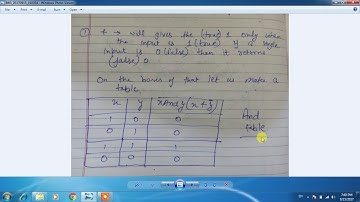 & → will gives the (true) 1 only when
the input is 1 (true) If a single
input is 0 (false) then it returns
(false) 0
On the bases of that let us make a
table
x y xAndy (x & y)
1 0 0
0 1 0
1 1 1
0 0 0
And
table
7:48 PM